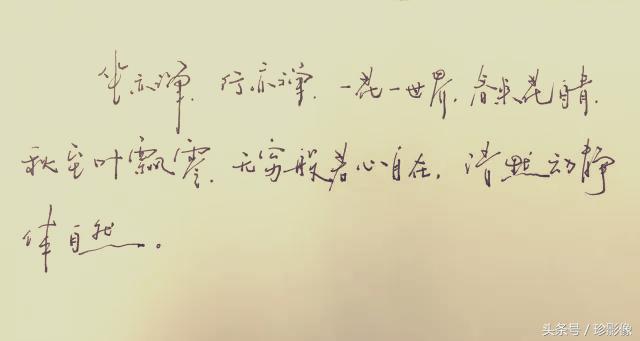 坐亦禅.行亦禅.一花一世界.春来花自青.
秋至叶飘零.无穷般若心自在.语默动静
体自然。
头条号 / 珍影像